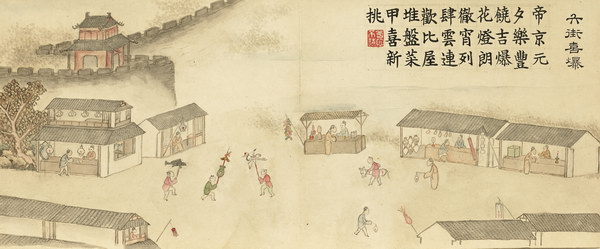 六街喜爆
帝京元
夕樂豐
饒吉爆
花燈朗
徹宵列
肆雲連
歡比屋
堆盤菜
甲喜新
挑